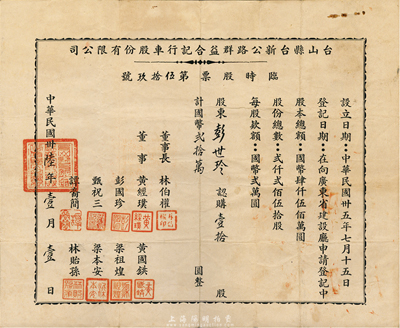 台山縣台新公路群益合記行車股份有限公司
臨時股票第伍拾玖號
設立日期：中華民國卅五年七月十五日
登記日期：在向廣東省建設廳申請登記中
股本總額：國幣肆仟伍佰萬圓
股份總數：弍仟弍佰伍拾股
每股款額：國幣弍萬圓
股東 彭世玲 認購壹拾股
計國幣弍拾萬圓整
董事長 林伯權
董事 黃經璞 黃國鉷
彭國珍 梁祖煌
甄祝三 梁本安
譚裔簡 林貽孫
中華民國卅陸年壹月壹日